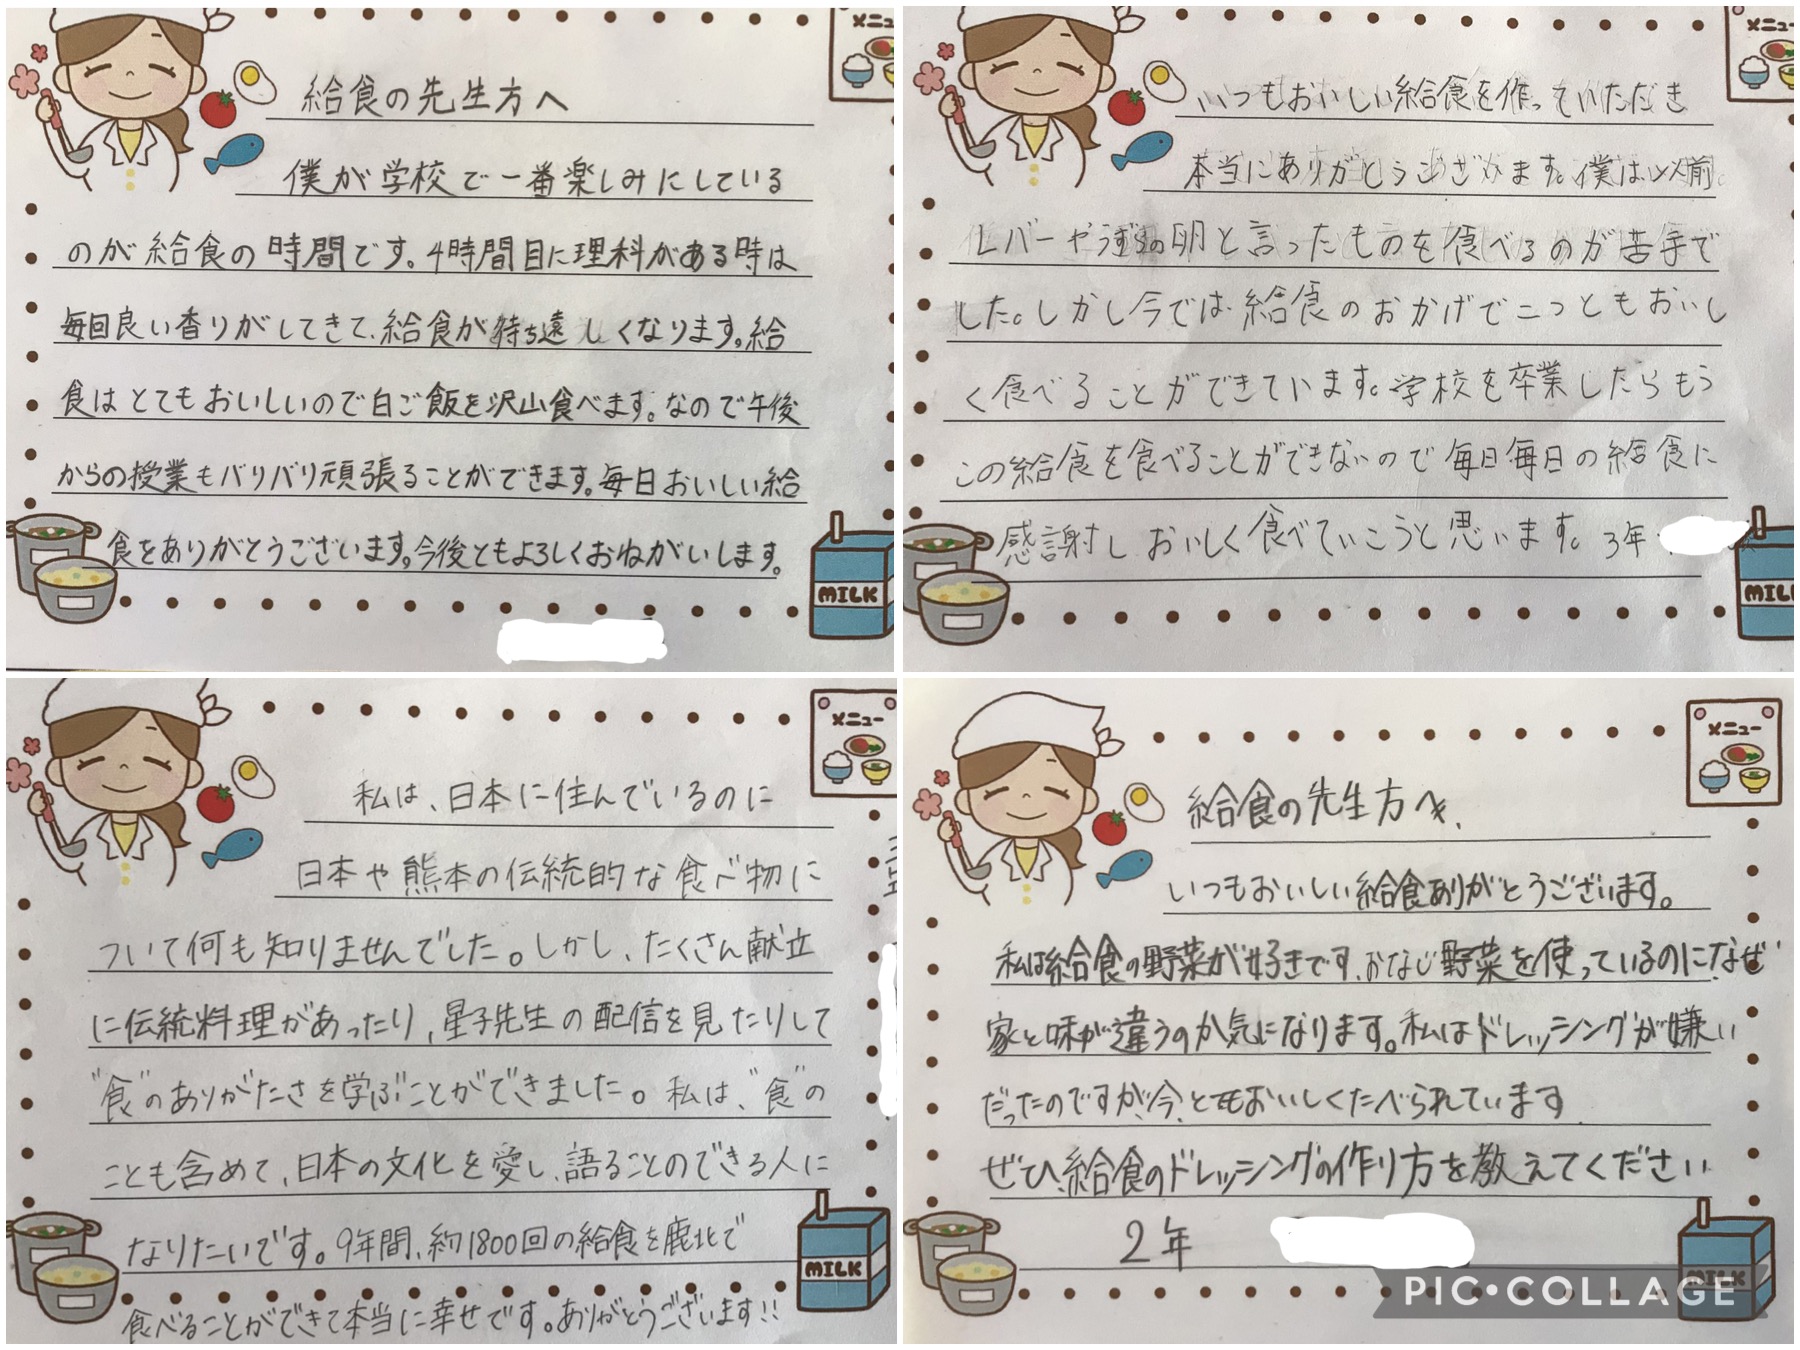 メニュー
給食の先生方へ
僕が学校で一番楽しみにしている
のが給食の時間です。4時間目に理科がある時は
毎回良い香りがしてきて、給食が待ち遠しくなります。給
食はとてもおいしいので白ご飯を沢山食べます。なので午後
からの授業もバリバリ頑張ることができます。毎日おいしい給
食をありがとうございます。今後ともよろしくおねがいします。
MILK
メニュー
いつもおいしい給食を作っていただき
本当にありがとうございます。僕は以前
レバーやうずらの卵と言ったものを食べるのが苦手で
した。しかし今では給食のおかげで二つともおいし
く食べることができています。学校を卒業したらもう
この給食を食べることができないので毎日毎日の給食に
感謝しおいしく食べていこうと思います。3年
MILK
メニュー
私は、日本に住んでいるのに
日本や熊本の伝統的な食べ物に
ついて何も知りませんでした。しかし、たくさん献立
に伝統料理があったり、星子先生の配信を見たりして
"食"のありがたさを学ぶことができました。私は、"食"の
ことも含めて、日本の文化を愛し、語ることのできる人に
なりたいです。9年間、約1800回の給食を鹿北で
食べることができて本当に幸せです。ありがとうございます!!
MILK
メニュー
給食の先生方へ
いつもおいしい給食ありがとうございます。
私は給食の野菜が好きです、おなじ野菜を使っているのになぜ
家と味が違うのか気になります。私はドレッシングが嫌い
だったのですが、今、とてもおいしくたべられています
ぜひ、給食のドレッシングの作り方を教えてください
2年
MILK
PIC•COLLAGE